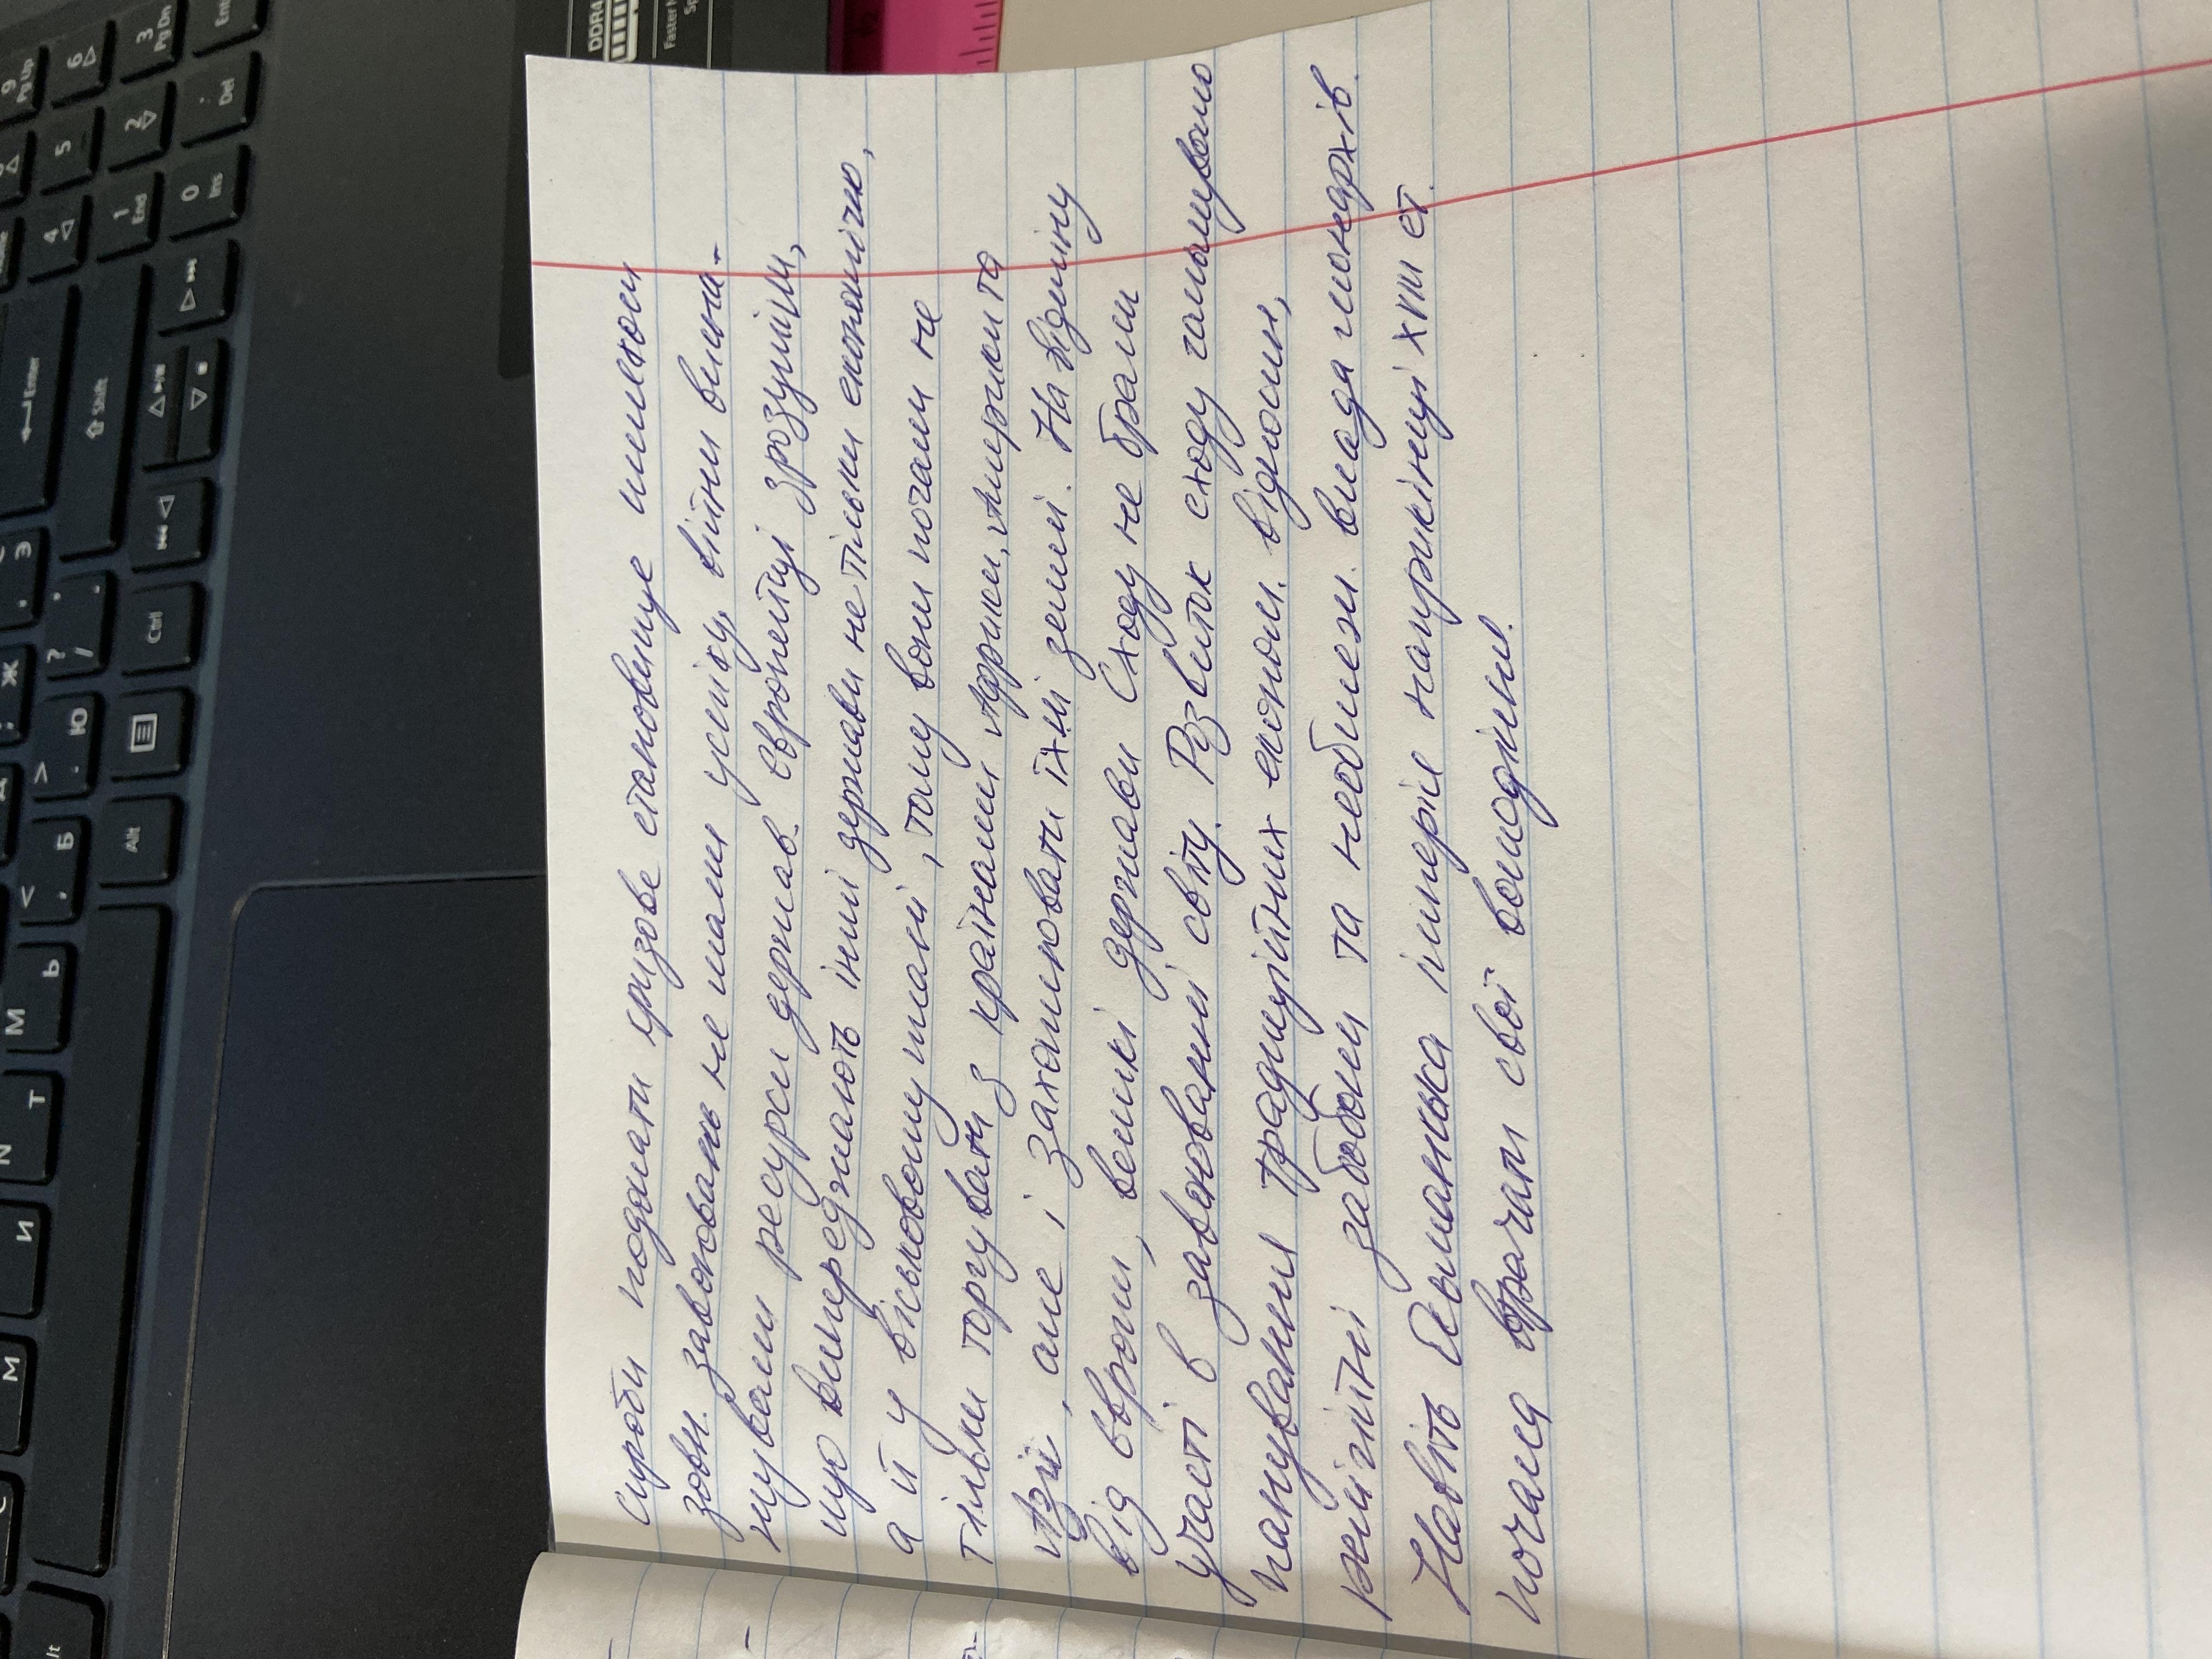 спроби подолати кризове становище шляхом
зовн. завоювань не мали успіху, війни висна-
жували ресурси держав. Європейці зрозуміли,
що випереджають інші держави не тільки економічно,
а й у військовому плані, тому вони почали не
тільки торгувати з країнами Африки, Америки та
Азії, але і захоплювати їхні землі. На відміну
від Європи, великі держави Сходу не брали
участі в завоюванні світу. Розвиток сходу гальмувало
панування традиційних економ. відносин,
релігійні забобони та необмежен. влада монархів.
Навіть Османська імперія наприкінці XVIII ст.
почала втрачати свої володіння.
9
Pg Up
6
3
Pg Dn
Ent
5
2
Del
4
1
End
0
Ins
Enter
Shift
Э
Ж
?
/
.
Ctrl
>
.
Ю
<
,
Б
Alt
М
Ь
N
Т
И
M
С
DDR4
Faster